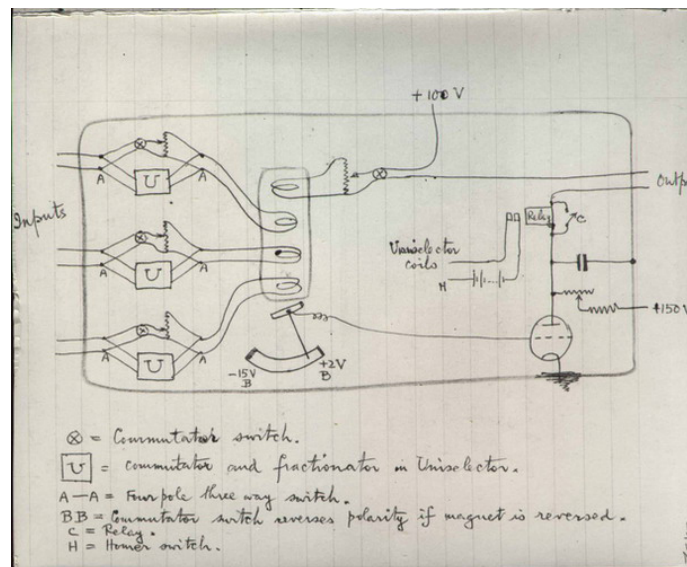 + 100 V
Inputs
A
U
A
Outp
Relay
C
Uniselector
coils
H
A
U
A
+150V
A
U
A
-15V
B
+2V
B
⊗ = Commutator switch.
U = commutator and fractionator in Uniselector.
A–A = Four pole three way switch.
BB = Commutator switch reverses polarity if magnet is reversed.
C = Relay.
H = Homer switch.